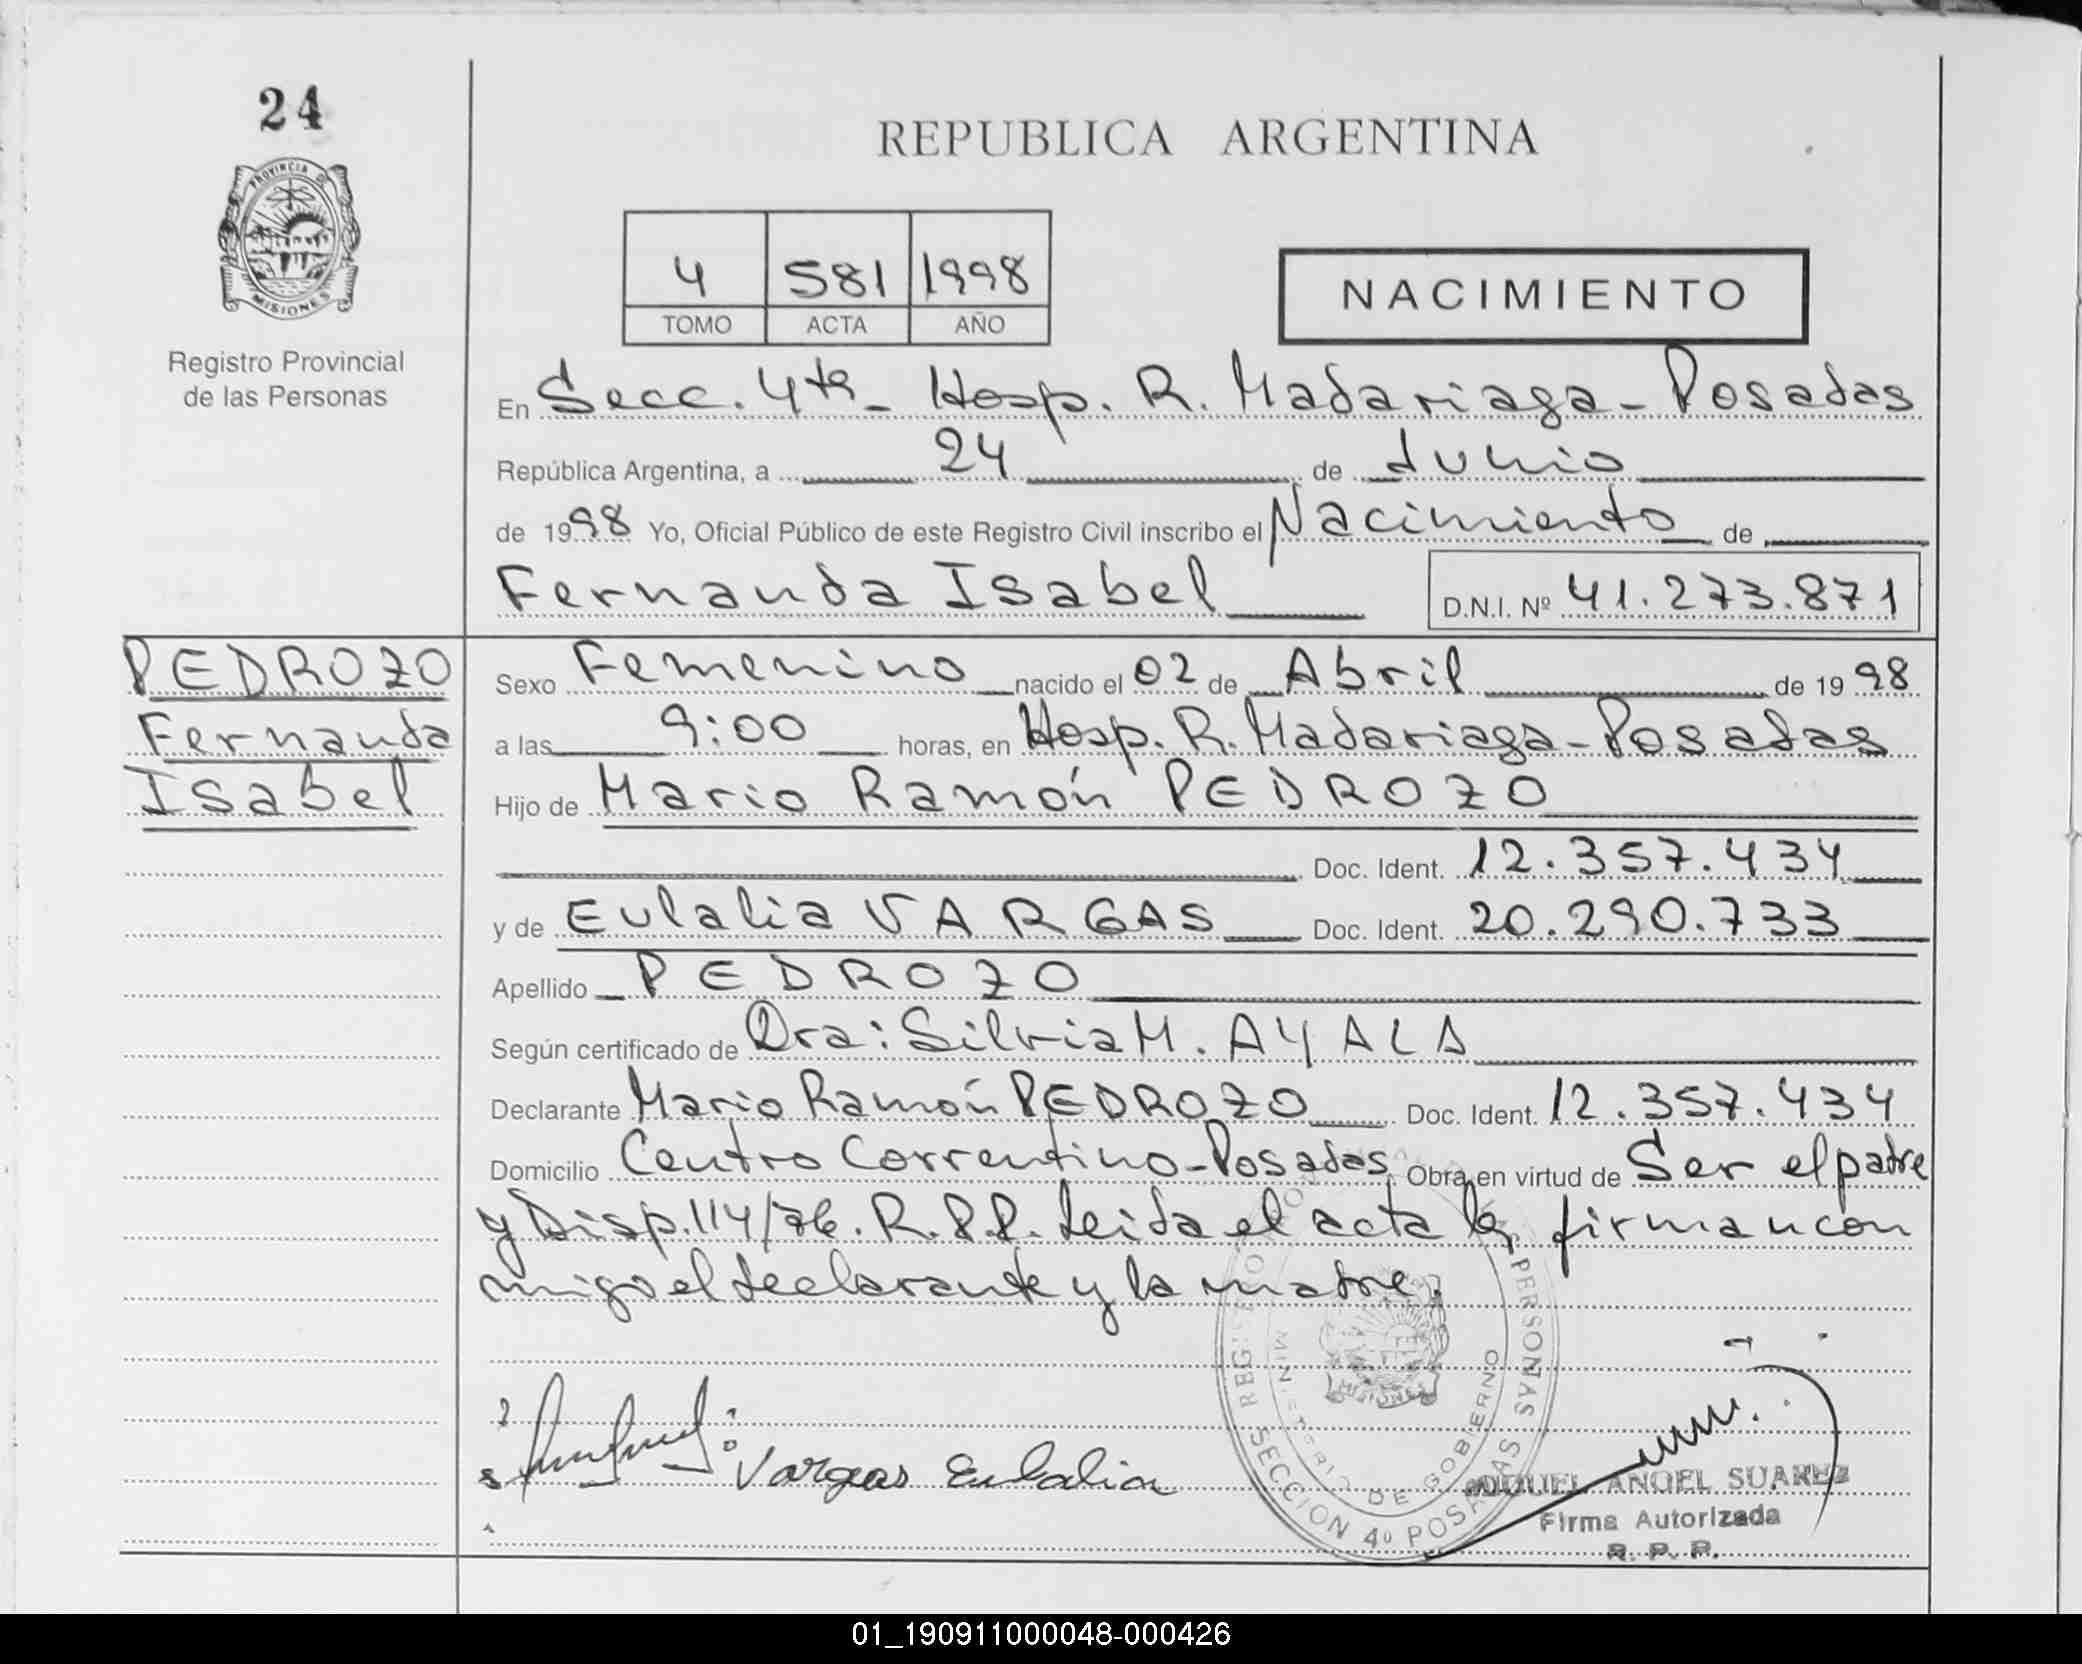 24
PROVINCIA DE
MISIONES
Registro Provincial
de las Personas
REPUBLICA ARGENTINA
4 581 1998
TOMO ACTA AÑO
NACIMIENTO
En Secc. 4ta - Hosp. R. Madariaga - Posadas
República Argentina, a 24 de Junio
de 1998 Yo, Oficial Público de este Registro Civil inscribo el Nacimiento de
Fernanda Isabel D.N.I. Nº 41.273.871
PEDROZO
Fernanda
Isabel
Sexo Femenino nacido el 02 de Abril de 1998
a las 9:00 horas, en Hosp. R. Madariaga - Posadas
Hijo de Mario Ramón PEDROZO
Doc. Ident. 12.357.434
y de Eulalia VARGAS Doc. Ident. 20.290.733
Apellido PEDROZO
Según certificado de Dra: Silvia M. AYALA
Declarante Mario Ramón PEDROZO Doc. Ident. 12.357.434
Domicilio Centro Correntino - Posadas Obra en virtud de Ser el padre
y Disp. 114/76. R.P.P. Leida el acta la firman con
migo el declarante y la madre.
PERSONAS
MINISTERIO DE GOBIERNO
MISIONES
SECCION 4º POSADAS
Vargas Eulalia
MIGUEL ANGEL SUAREZ
Firma Autorizada
R. P. P.
01_190911000048-000426